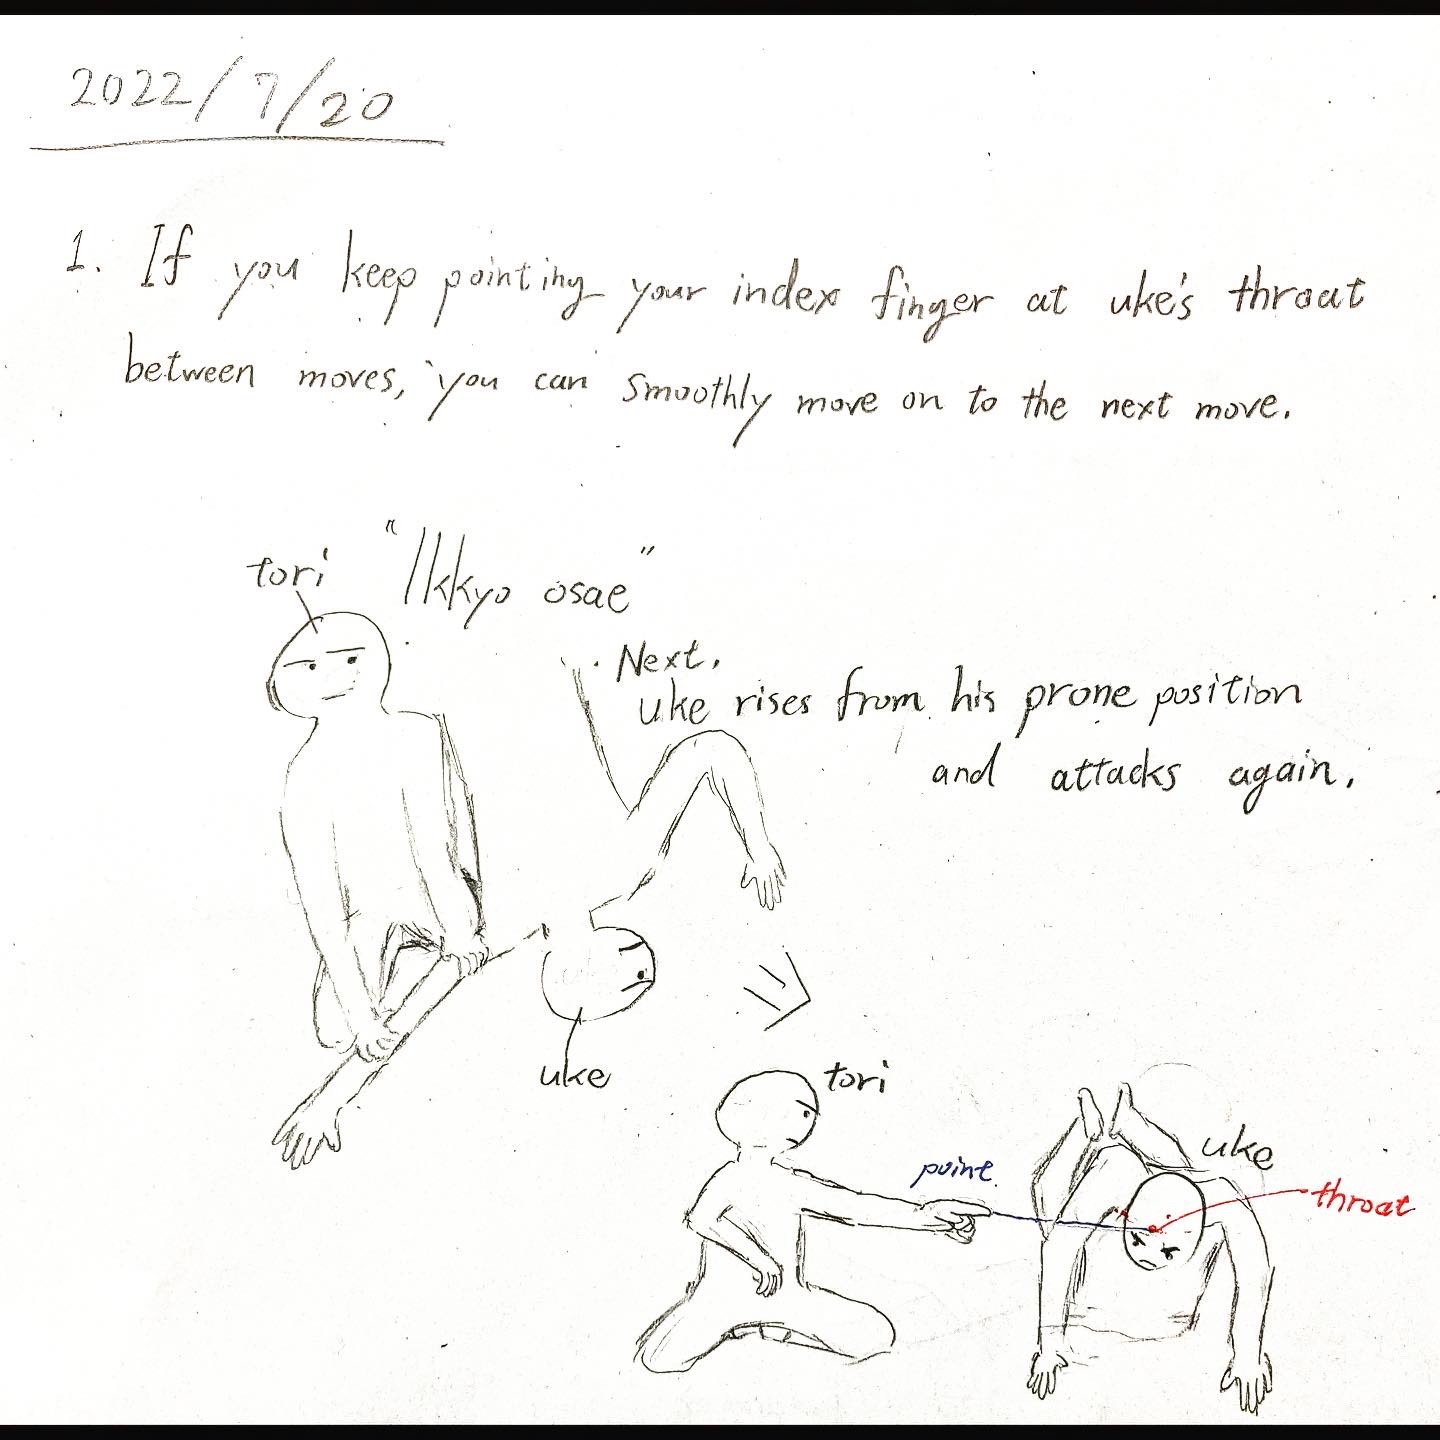 2022/7/20
1. If you keep pointing your index finger at uke's throat
between moves, you can smoothly move on to the next move.
tori
"Ikkyo osae"
Next,
uke rises from his prone position
and attacks again.
uke
tori
point
uke
throat